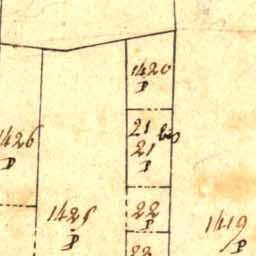 1420
P
21 bis
21
P
1426
P
1425
P
22
P
1419
P
23